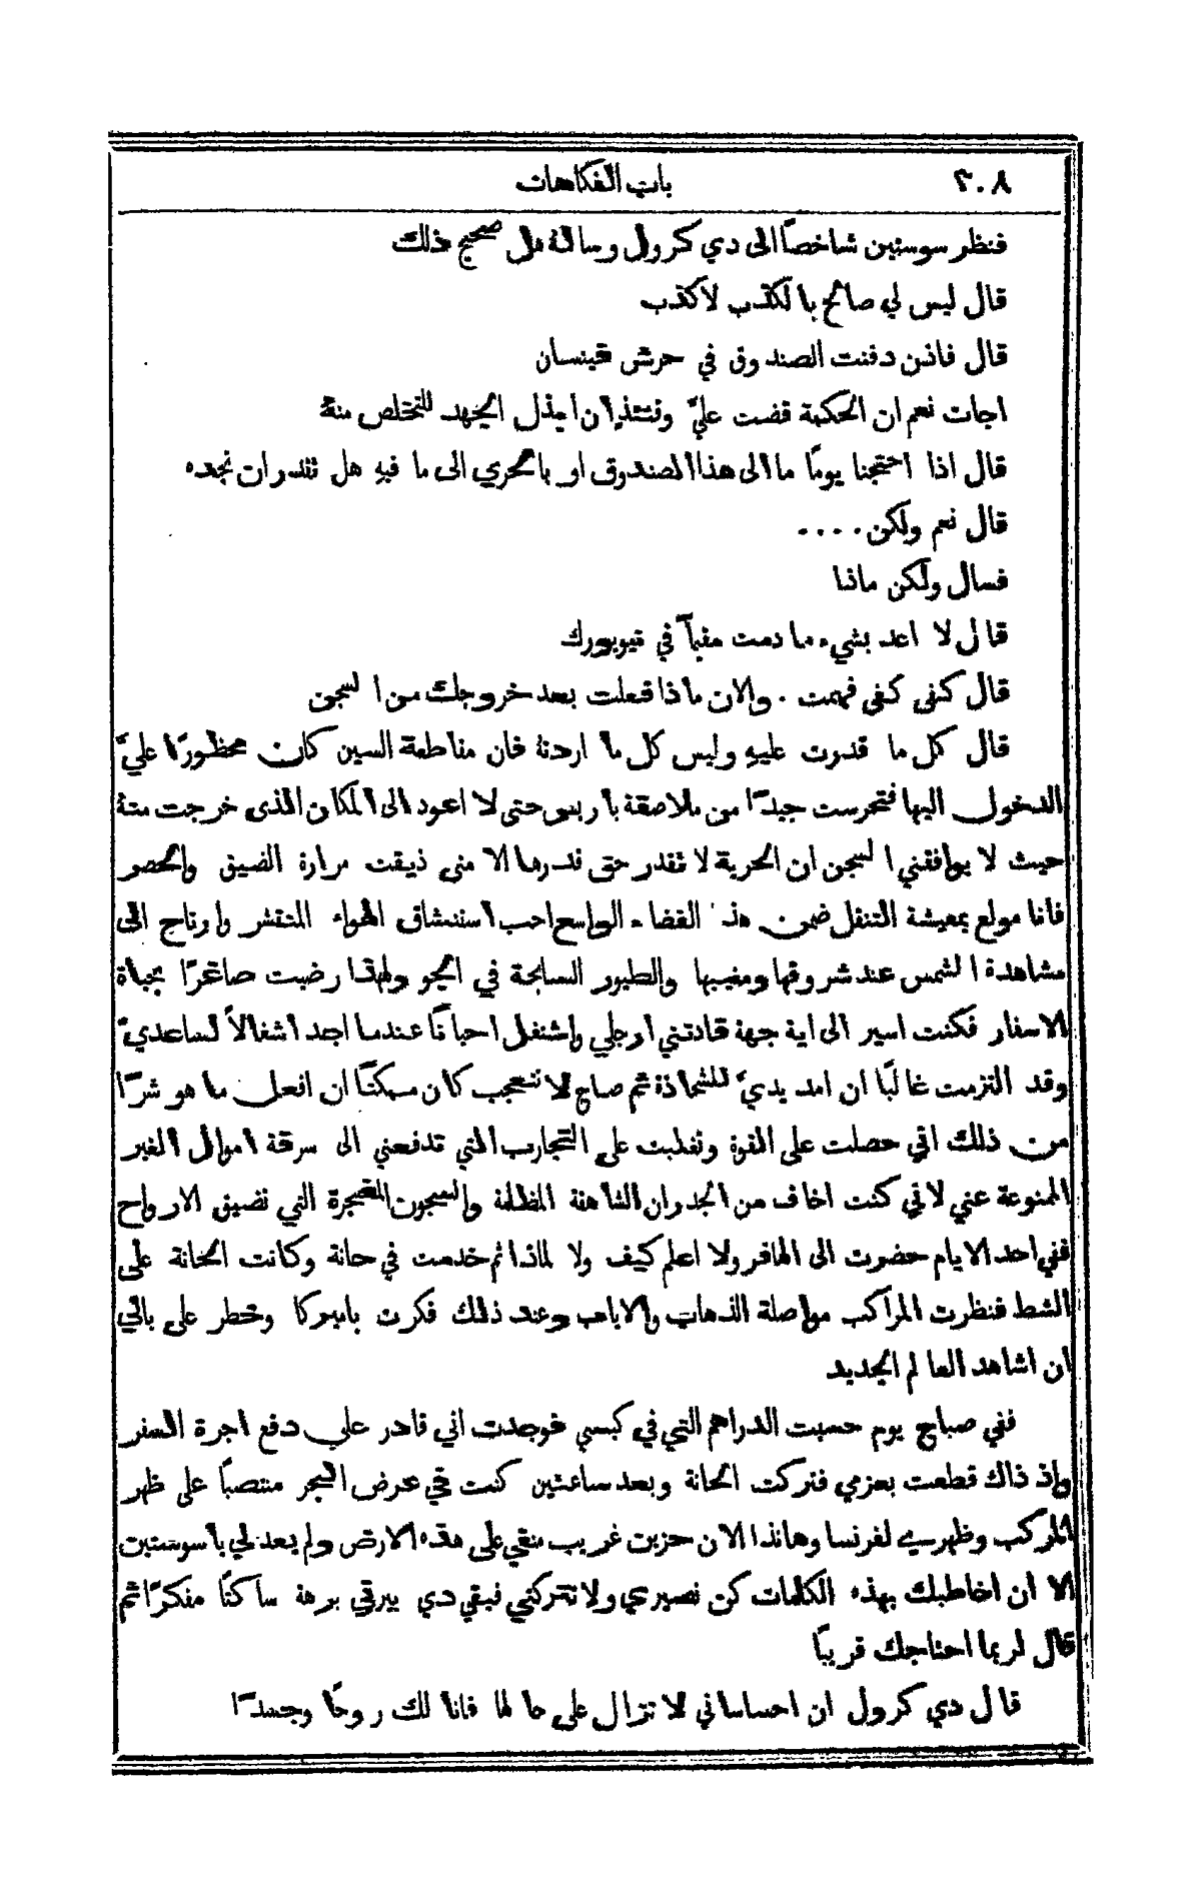 ٣٠٨ باب الفكاهات
فنظر سوستين شاخصًا الى دي كرول وسالهُ هل صحيح ذلك
قال ليس لي صالح بالكذب لاكذب
قال فاذن دفنت الصندوق في حرش فينسان
اجات نعم ان الحكمة قضت عليَّ وقتئذٍ ان ابذل الجهد للتخلص منهُ
قال اذا احتجنا يومًا ما الى هذا الصندوق او بالحري الى ما فيهِ هل تقدر ان نجده
قال نعم ولكن ....
فسال ولكن ماذا
قال لا اعد بشيء ما دمت مقيمًا في نيويورك
قال كفى كفى فهمت . والان ماذا فعلت بعد خروجك من السجن
قال كل ما قدرت عليهِ وليس كل ما اردتهُ فان مقاطعة السين كان محظورًا عليَّ
الدخول اليها فتحرست جيدًا من ملاصقة باريس حتى لا اعود الى المكان الذي خرجت منهُ
حيث لا يوافقني السجن ان الحرية لا تقدر حق قدرها الا متى ذيقت مرارة الضيق والحصر
فانا مولع بمعيشة التنقل ضمن هذا الفضاء الواسع احب استنشاق الهواء المنتشر وارتاح الى
مشاهدة الشمس عند شروقها ومغيبها والطيور السابحة في الجو ولهذا رضيت صاغرًا بحياة
الاسفار فكنت اسير الى اية جهة قادتني ارجلي واشتغل احيانًا عندما اجد اشغالاً لساعديَّ
وقد التزمت غالبًا ان امد يديَّ للشحاذة ثم صاح لا تتعجب كان ممكنًا ان افعل ما هو شرًا
من ذلك اني حصلت على القوة وتغلبت على التجارب التي تدفعني الى سرقة اموال الغير
الممنوعة عني لاني كنت اخاف من الجدران الشاهقة المظلمة والسجون المضجرة التي تضيق الارواح
ففي احد الايام حضرت الى الهافر ولا اعلم كيف ولا لماذا ثم خدمت في حانة وكانت الحانة على
الشط فنظرت المراكب مواصلة الذهاب والاياب وعند ذلك فكرت باميركا وخطر على بالي
ان اشاهد العالم الجديد
ففي صباح يوم حسبت الدراهم التي في كيسي فوجدت اني قادر على دفع اجرة السفر
واذ ذاك قطعت بعزمي فتركت الحانة وبعد ساعتين كنت في عرض البحر منتصبًا على ظهر
المركب وظهري لفرنسا وهانذا الان حزين غريب منفي على هذه الارض ولم يعد لي يا سوستين
الا ان اخاطبك بهذه الكلمات كن نصيري ولا تتركني فبقي دي بيرقي برهة ساكنًا مفكرًا ثم
قال لربما احتاجك قريبًا
قال دي كرول ان احساساتي لا تزال على حالها فانا لك روحًا وجسدًا